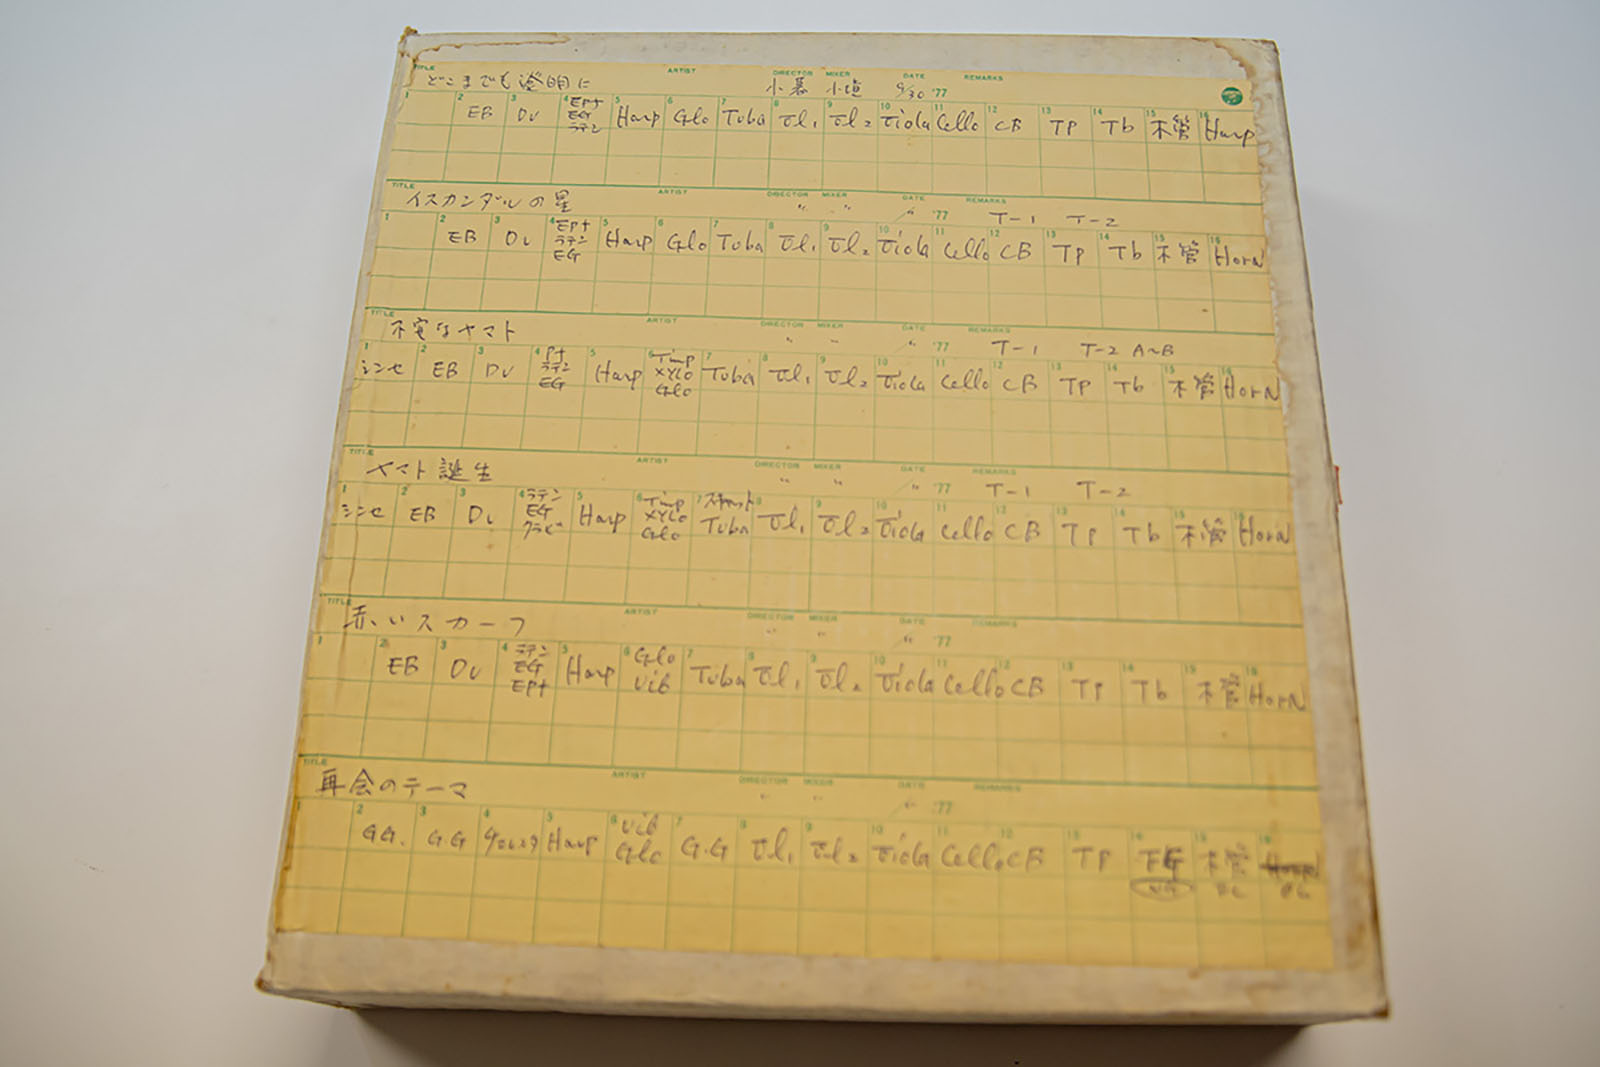 TITLE ARTIST DIRECTOR MIXER DATE REMARKS
どこまでも透明に 小暮 9/30 '77
1 2 3 4 5 6 7 8 9 10 11 12 13 14 15 16
EB Dr EPf EG ラテン Harp Glo Tuba Vl1 Vl2 Viola Cello CB TP Tb 木管 Harp
TITLE ARTIST DIRECTOR MIXER DATE REMARKS
イスカンダルの星 〃 〃 〃 '77 T-1 T-2
1 2 3 4 5 6 7 8 9 10 11 12 13 14 15 16
EB Dr EPf ラテン EG Harp Glo Tuba Vl1 Vl2 Viola Cello CB TP Tb 木管 HorN
TITLE ARTIST DIRECTOR MIXER DATE REMARKS
不安なヤマト 〃 〃 〃 '77 T-1 T-2 A~B
1 2 3 4 5 6 7 8 9 10 11 12 13 14 15 16
シンセ EB Dr Pf ラテン EG Harp Timp XYLO Glo Tuba Vl1 Vl2 Viola Cello CB TP Tb 木管 HorN
TITLE ARTIST DIRECTOR MIXER DATE REMARKS
ヤマト誕生 〃 〃 〃 '77 T-1 T-2
1 2 3 4 5 6 7 8 9 10 11 12 13 14 15 16
シンセ EB Dr ラテン EG クラビ Harp Timp XYLO Glo スキャット Tuba Vl1 Vl2 Viola Cello CB TP Tb 木管 HorN
TITLE ARTIST DIRECTOR MIXER DATE REMARKS
赤いスカーフ 〃 〃 〃 '77
1 2 3 4 5 6 7 8 9 10 11 12 13 14 15 16
EB Dr ラテン EG EPf Harp Glo Vib Tuba Vl1 Vl2 Viola Cello CB TP Tb 木管 HorN
TITLE ARTIST DIRECTOR MIXER DATE REMARKS
再会のテーマ 〃 〃 〃 '77
1 2 3 4 5 6 7 8 9 10 11 12 13 14 15 16
G.G. G.G チェレスタ Harp Vib Glo G.G Vl1 Vl2 Viola Cello CB TP 木管